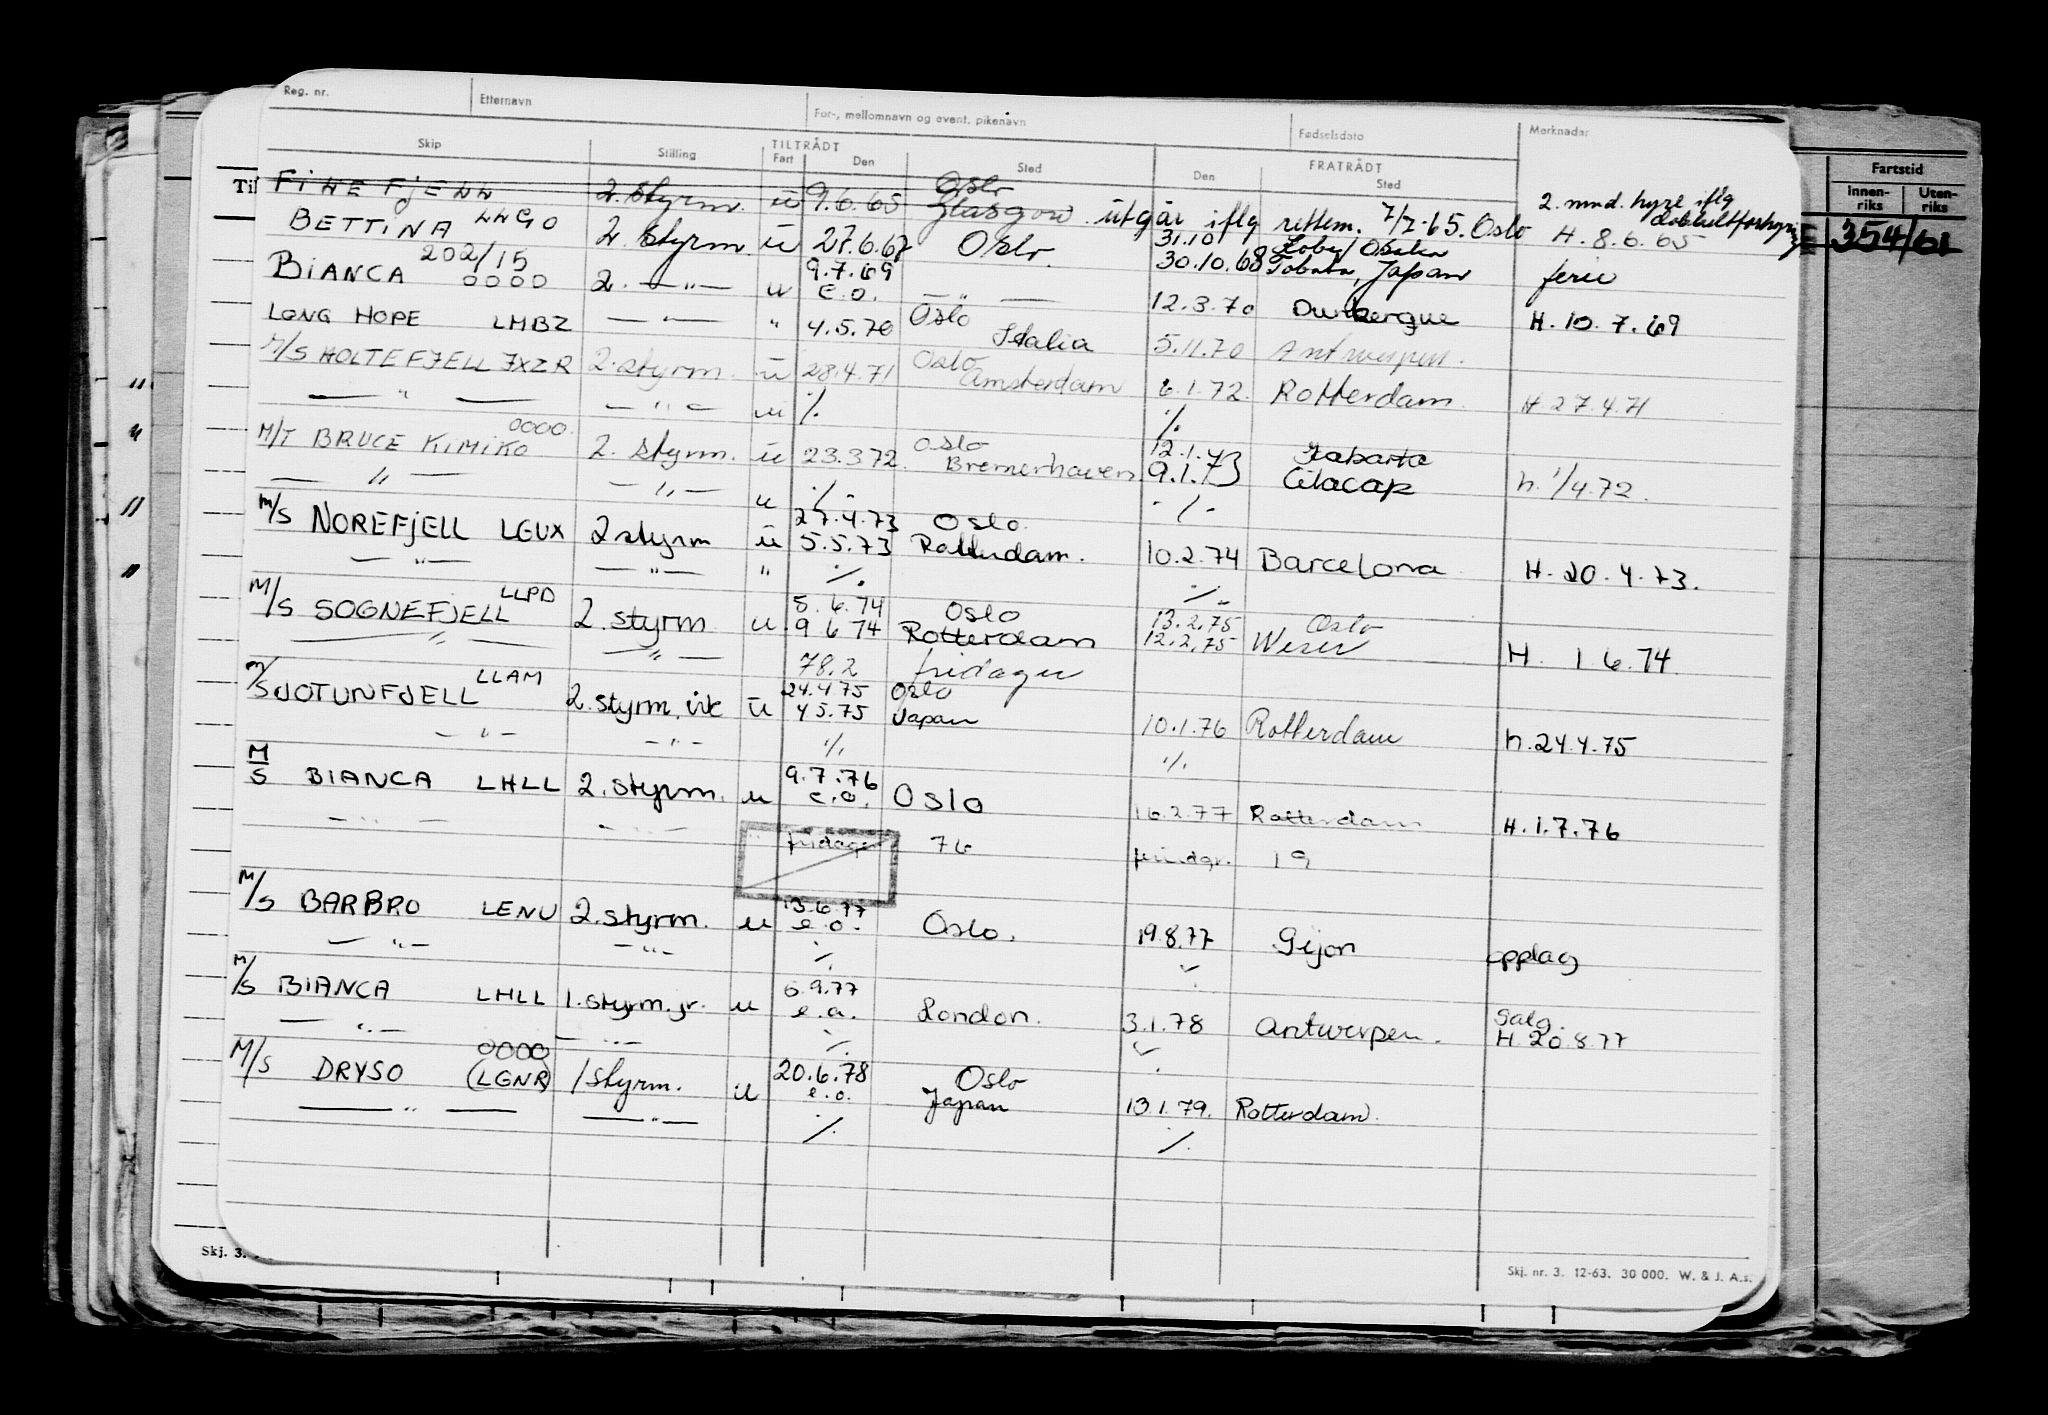 Reg. nr. Etternavn For-, mellomnavn og event. pikenavn Fødselsdato Merknader
Skip Stilling TILTRÅDT Fart Den Sted FRATRÅDT Den Sted
Fartstid
Innen-riks Uten-riks
354/61
FINEFJELL 2. styrm. ü 9.6.65 Oslo Glasgow utgår iflg rettem. 7/7-65. Oslo 2. mnd. hyre iflg dobbeltforhyring H. 8.6.65
BETTINA LHGO 2. styrm ü 27.6.67 Oslo. 31.10 30.10.68 Kobe/Osaka Tobata, Japan ferie
BIANCA 202/15 0000 2. —"— u 9.7.69 e.o. —"— 12.3.70 Dunkerque H. 10.7.69
LONG HOPE LMBZ —"— " 4.5.70 Oslo Italia 5.11.70 Antwerpen.
M/S HOLTEFJELL JXZR 2. styrm. ü 28.4.71 Oslo Amsterdam 6.1.72. Rotterdam H. 27.4.71
—"— —"— u ./. ./.
M/T BRUCE KIMIKO 0000 2. styrm. ü 23.3.72. Oslo Bremerhaven 12.1.73 9.1.73 Cilacap h. 1/4.72.
—"— —"— u ./. ./.
M/S NOREFJELL LGUX 2 styrm ü 27.4.73 5.5.73 Oslo. Rotterdam. 10.2.74 Barcelona H. 20.4.73.
—"— —"— " ./. ./.
M/S SOGNEFJELL LLPD 2. styrm u 5.6.74 9 6 74 Oslo Rotterdam 13.2.75 12.2.75 Oslo Weser H. 1 6.74
—"— —"— 78.2 fridager
M/S JOTUNFJELL LLAM 2. styrm. ü 24.4.75 4 5.75 Oslo Japan 10.1.76 Rotterdam h. 24.4.75
—"— —"— ./. ./.
M/S BIANCA LHLL 2. styrm. u 9.7.76 e.o. Oslo 16.2.77 Rotterdam H. 1.7.76
—"— —"— fridager 76 fridgr. 19
M/S BARBRO LENU 2. styrm. u 13.6.77 e.o. Oslo. 19.8.77 Gijon opplag
—"— —"— ./.
M/S BIANCA LHLL 1. styrm. jr. u 6.9.77 e.a. London. 3.1.78 Antwerpen. Salg. H. 20.8.77
—"— —"— ./.
M/S DRYSO 0000 (LGNR) 1 styrm. u 20.6.78 e.o. Oslo Japan 13.1.79. Rotterdam.
—"— —"— ./. ./.
Skj. 3.
Skj. nr. 3. 12-63. 30 000. W. & J. A.s.